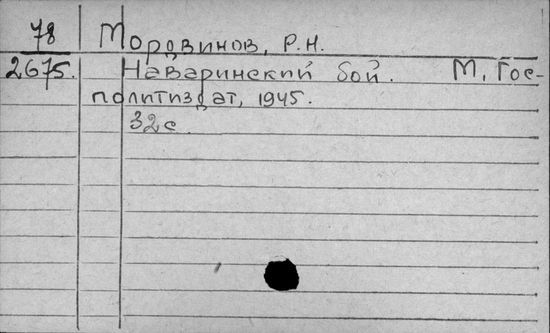 78 Мордвинов, Р.Н.
2675. Наваринский бой. М, Гос-
политиздат, 1945.
32с.